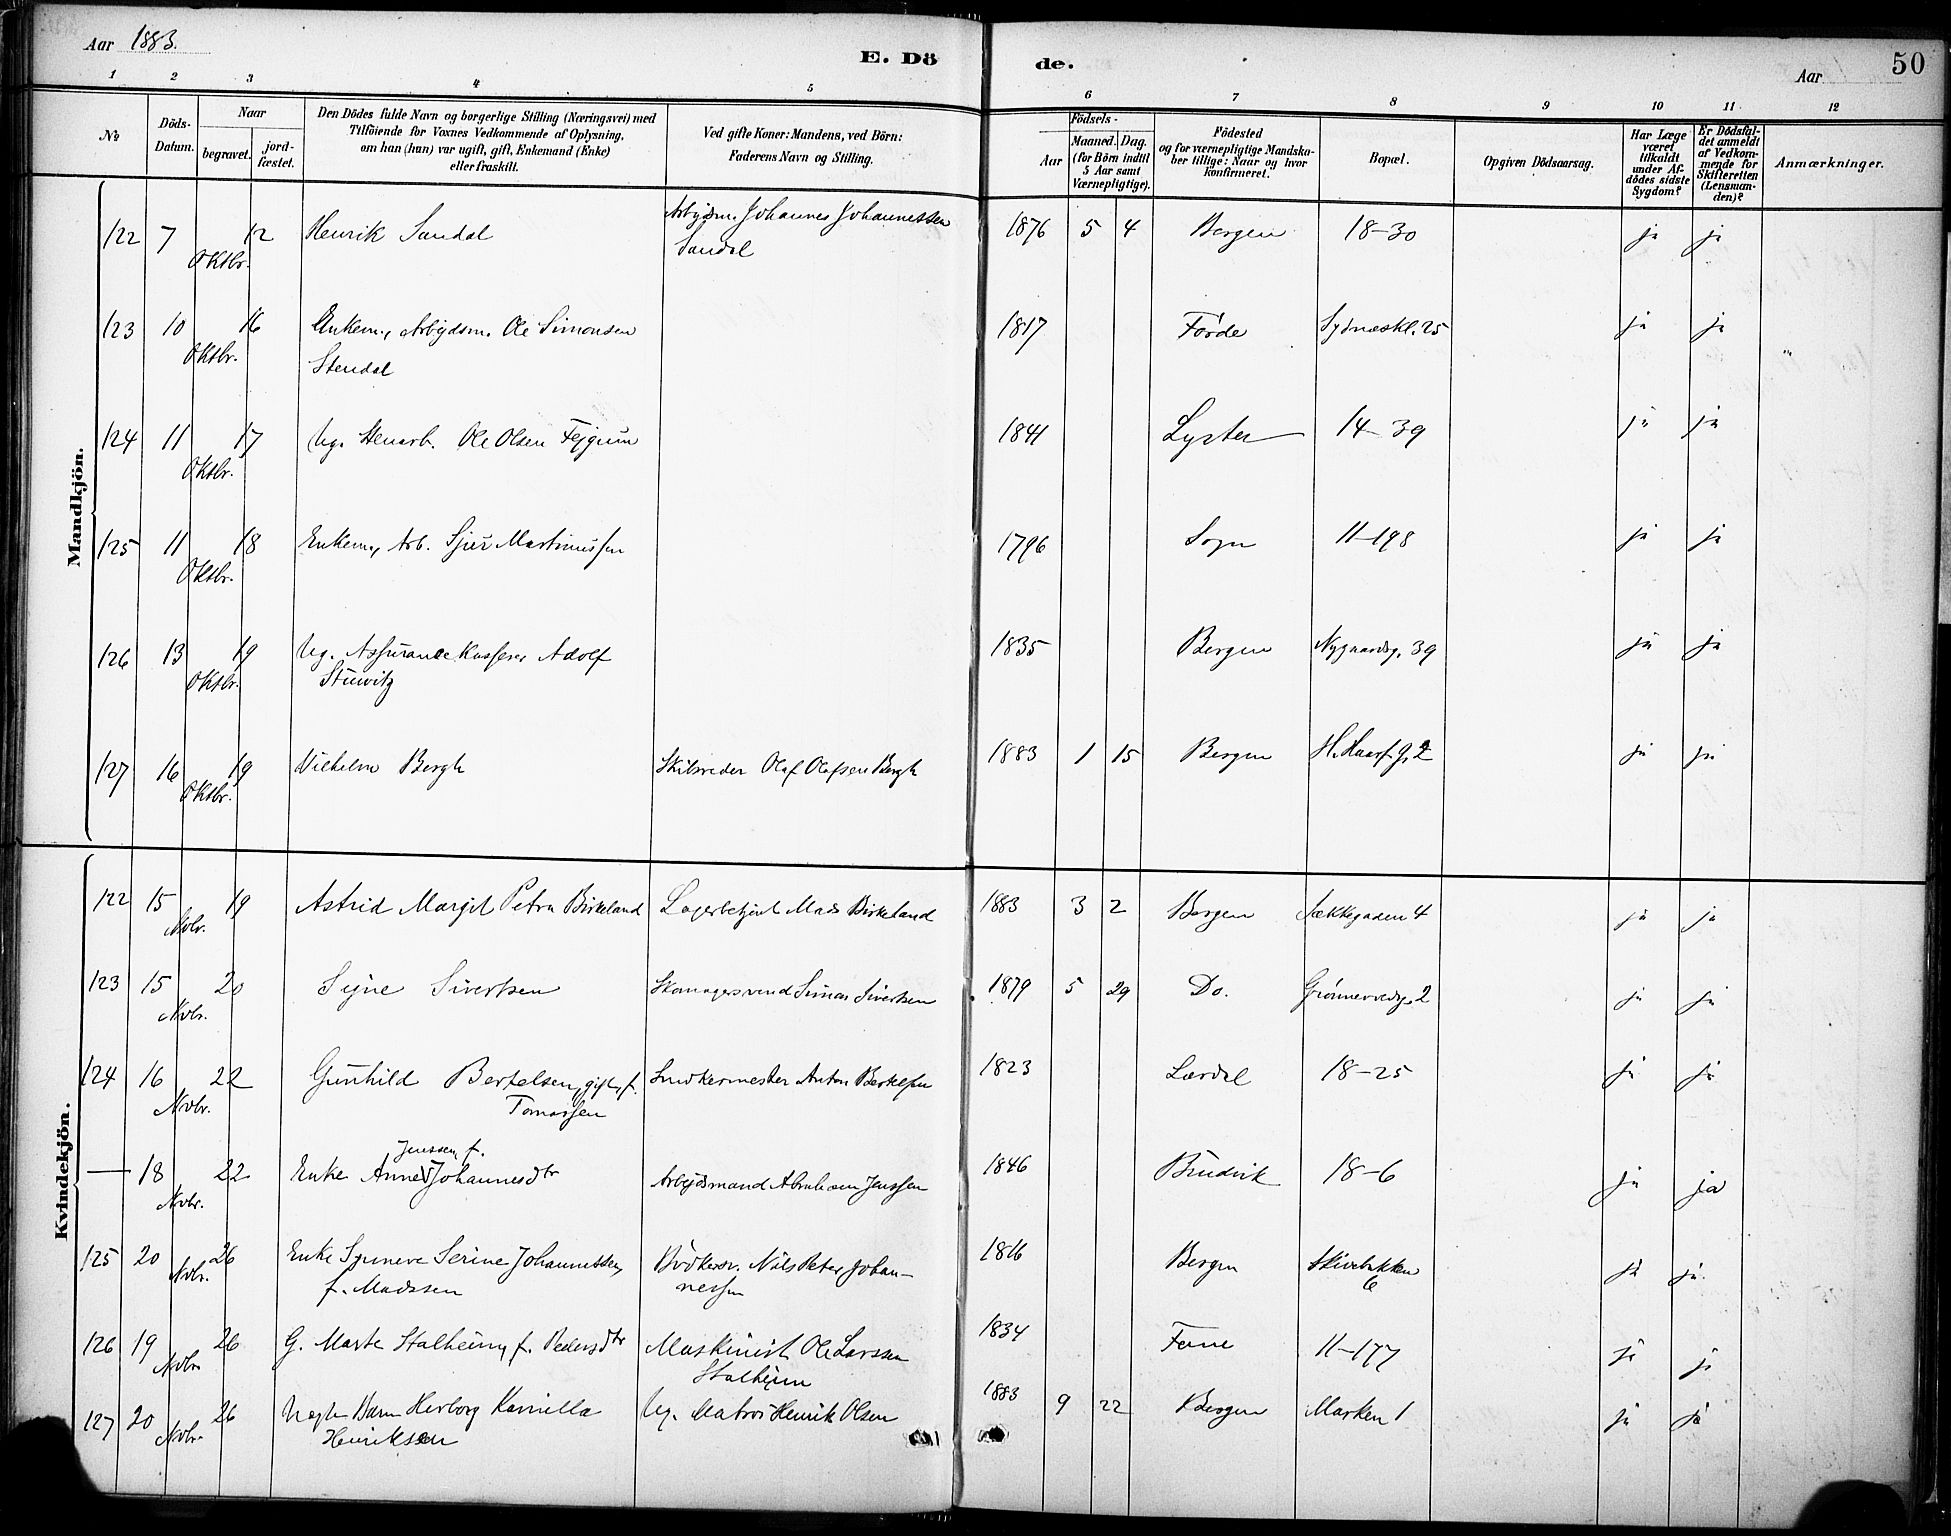 Aar 1883.
E. Dö
de.
Aar
50
1 2 3 4 5 6 7 8 9 10 11 12
№
Döds-
Datum.
Naar
begravet.
jord-
fæstet.
Den Dödes fulde Navn og borgerlige Stilling (Næringsvei) med
Tilföiende for Voxnes Vedkommende af Oplysning,
om han (hun) var ugift, gift, Enkemand (Enke)
eller fraskilt.
Ved gifte Koner: Mandens, ved Börn:
Faderens Navn og Stilling.
Födsels-
Aar
Maaned. Dag.
(for Börn indtil
5 Aar samt
Værnepligtige).
Födested
og for værnepligtige Mandska-
ber tillige: Naar og hvor
konfirmeret.
Bopæl.
Opgiven Dödsaarsag.
Har Læge
været
tilkaldt
under Af-
dödes sidste
Sygdom?
Er Dödsfal-
det anmeldt
af Vedkom-
mende for
Skifteretten
(Lensman-
den)?
Anmærkninger.
Mandkjön.
122 7 12 Henrik Sandal Arbejdsm. Johannes Johannessen 1876 5 4 Bergen 18-30 ja ja
Oktbr. Sandal
123 10 16 Enkem., Arbejdsm. Ole Simonsen 1817 Förde Sydnæskl. 25 ja ja
Oktbr. Stendal
124 11 17 Ug. Stenarb. Ole Olsen Fejgum 1841 Lyster 14-39 ja ja
Oktbr.
125 11 18 Enkem., Arb. Sjur Martinussen 1796 Sogn 11-198 ja ja
Oktbr.
126 13 19 Ug. Assurancekasserer Adolf 1835 Bergen Nygaardsg. 39 ja ja
Oktbr. Stuwitz
127 16 19 Vilhelm Bergh Skibsreder Olaf Olafsen Bergh 1883 1 15 Bergen H. Haarf. g. 2 ja ja
Oktbr.
Kvindekjön.
122 15 19 Astrid Margit Petra Birkeland Lagerbetjent Mads Birkeland 1883 3 2 Bergen Sækkegaden 4 ja ja
Nvbr.
123 15 20 Signe Sivertsen Skomagersvend Simon Sivertsen 1879 5 29 Do. Grönnevoldsg. 2 ja ja
Nvbr.
124 16 22 Gunhild Bertelsen, gift, f. Snedkermester Anton Bertelsen 1823 Lærdal 18-25 ja ja
Nvbr. Tomassen
Jenssen, f.
— 18 22 Enke Anne Johannesdtr Arbejdsmand Abraham Jenssen 1846 Bruvik 18-6 ja ja
Nvbr.
125 20 26 Enke Synneve Serine Johannessen, Bödkersv. Nils Peter Johan- 1816 Bergen Skivebakken ja ja.
Nvbr. f. Madssen nessen 6
126 19 26 G. Marte Stalheim, f. Pedersdtr Maskinist Ole Larssen 1834 Fane 11-177 ja ja
Nvbr. Stalheim
127 20 26 Uægte Barn Herborg Kamilla Ug. Matros Henrik Olsen 1883 9 22 Bergen Marken 1 ja ja
Nvbr. Henriksen